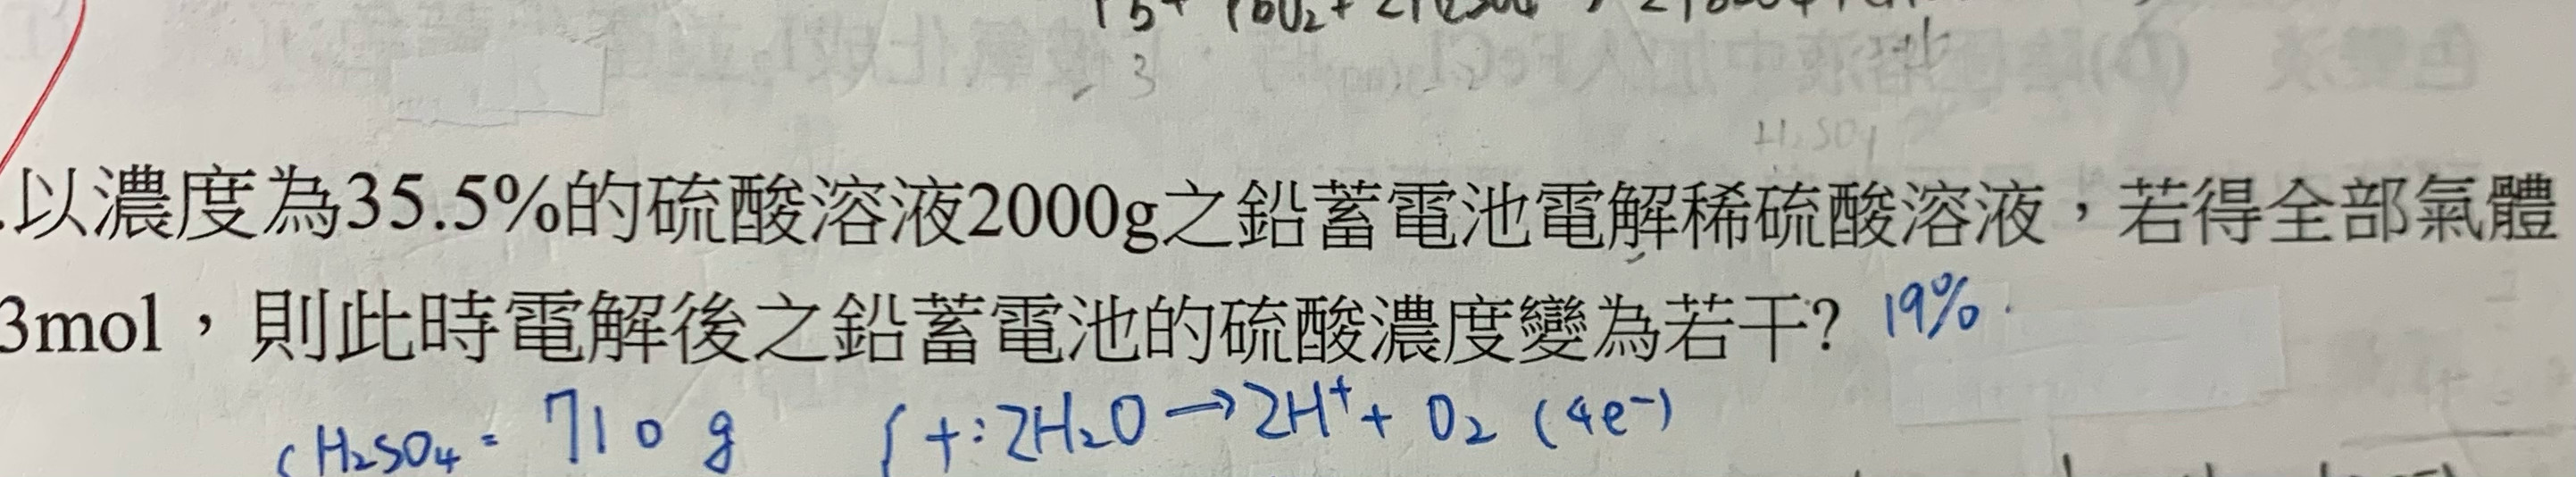 3
H₂SO₄
.以濃度為35.5%的硫酸溶液2000g之鉛蓄電池電解稀硫酸溶液，若得全部氣體
3mol，則此時電解後之鉛蓄電池的硫酸濃度變為若干? 19%.
H₂SO₄ = 710 g { +: 2H₂O → 2H⁺ + O₂ (4e⁻)